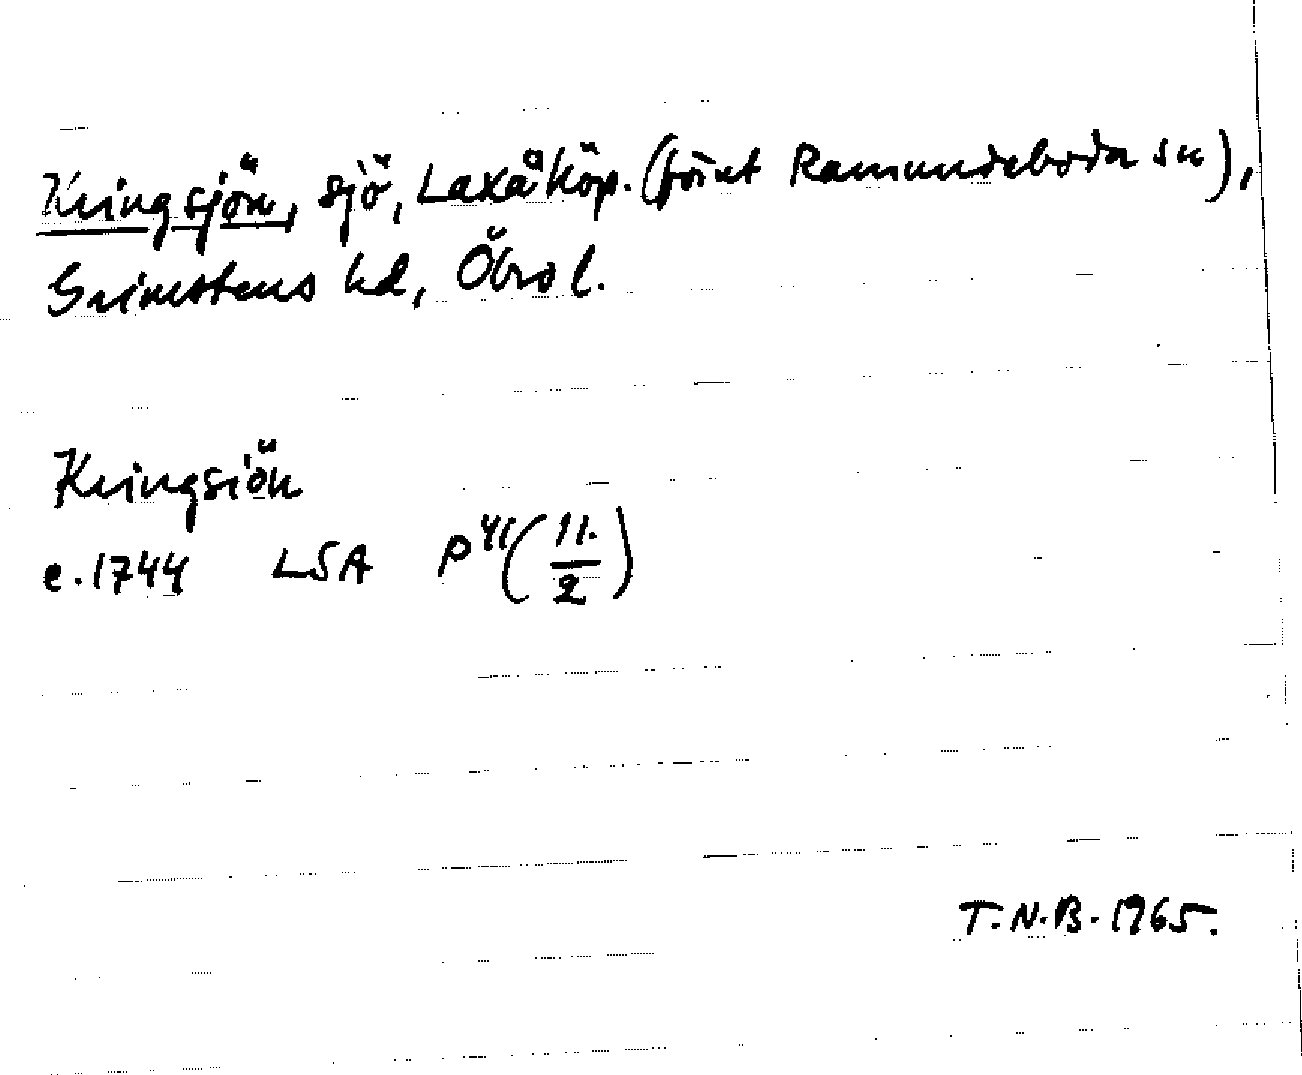 Kringsjön, sjö, Laxå köp. (förut Ramundeboda sn),
Grimstens hd, Öbro l.
Kringsiön
e. 1744 LSA P 41 (11./2)
T.N.B. 1965.